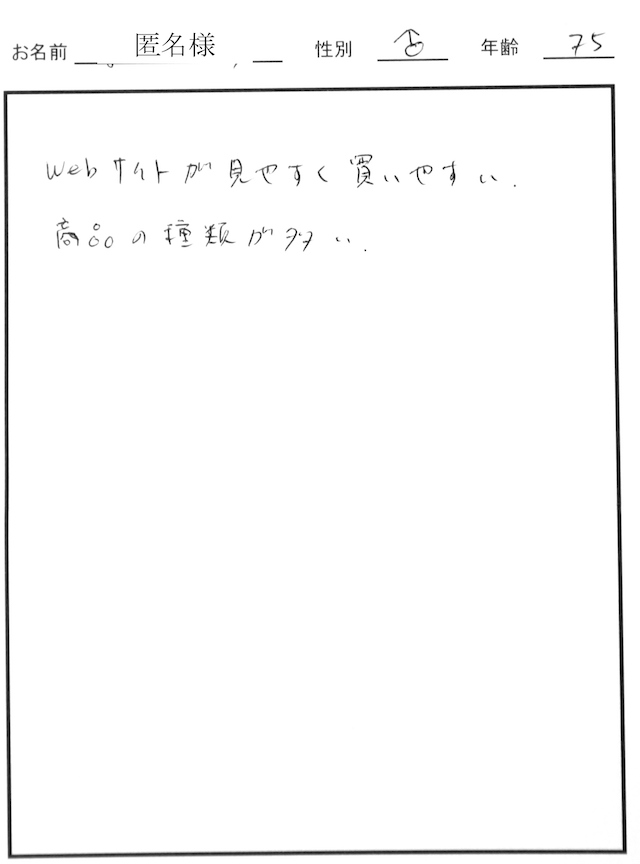 お名前 匿名様 性別 ♂ 年齢 75
Webサイトが見やすく買いやすい.
商品の種類が多い.